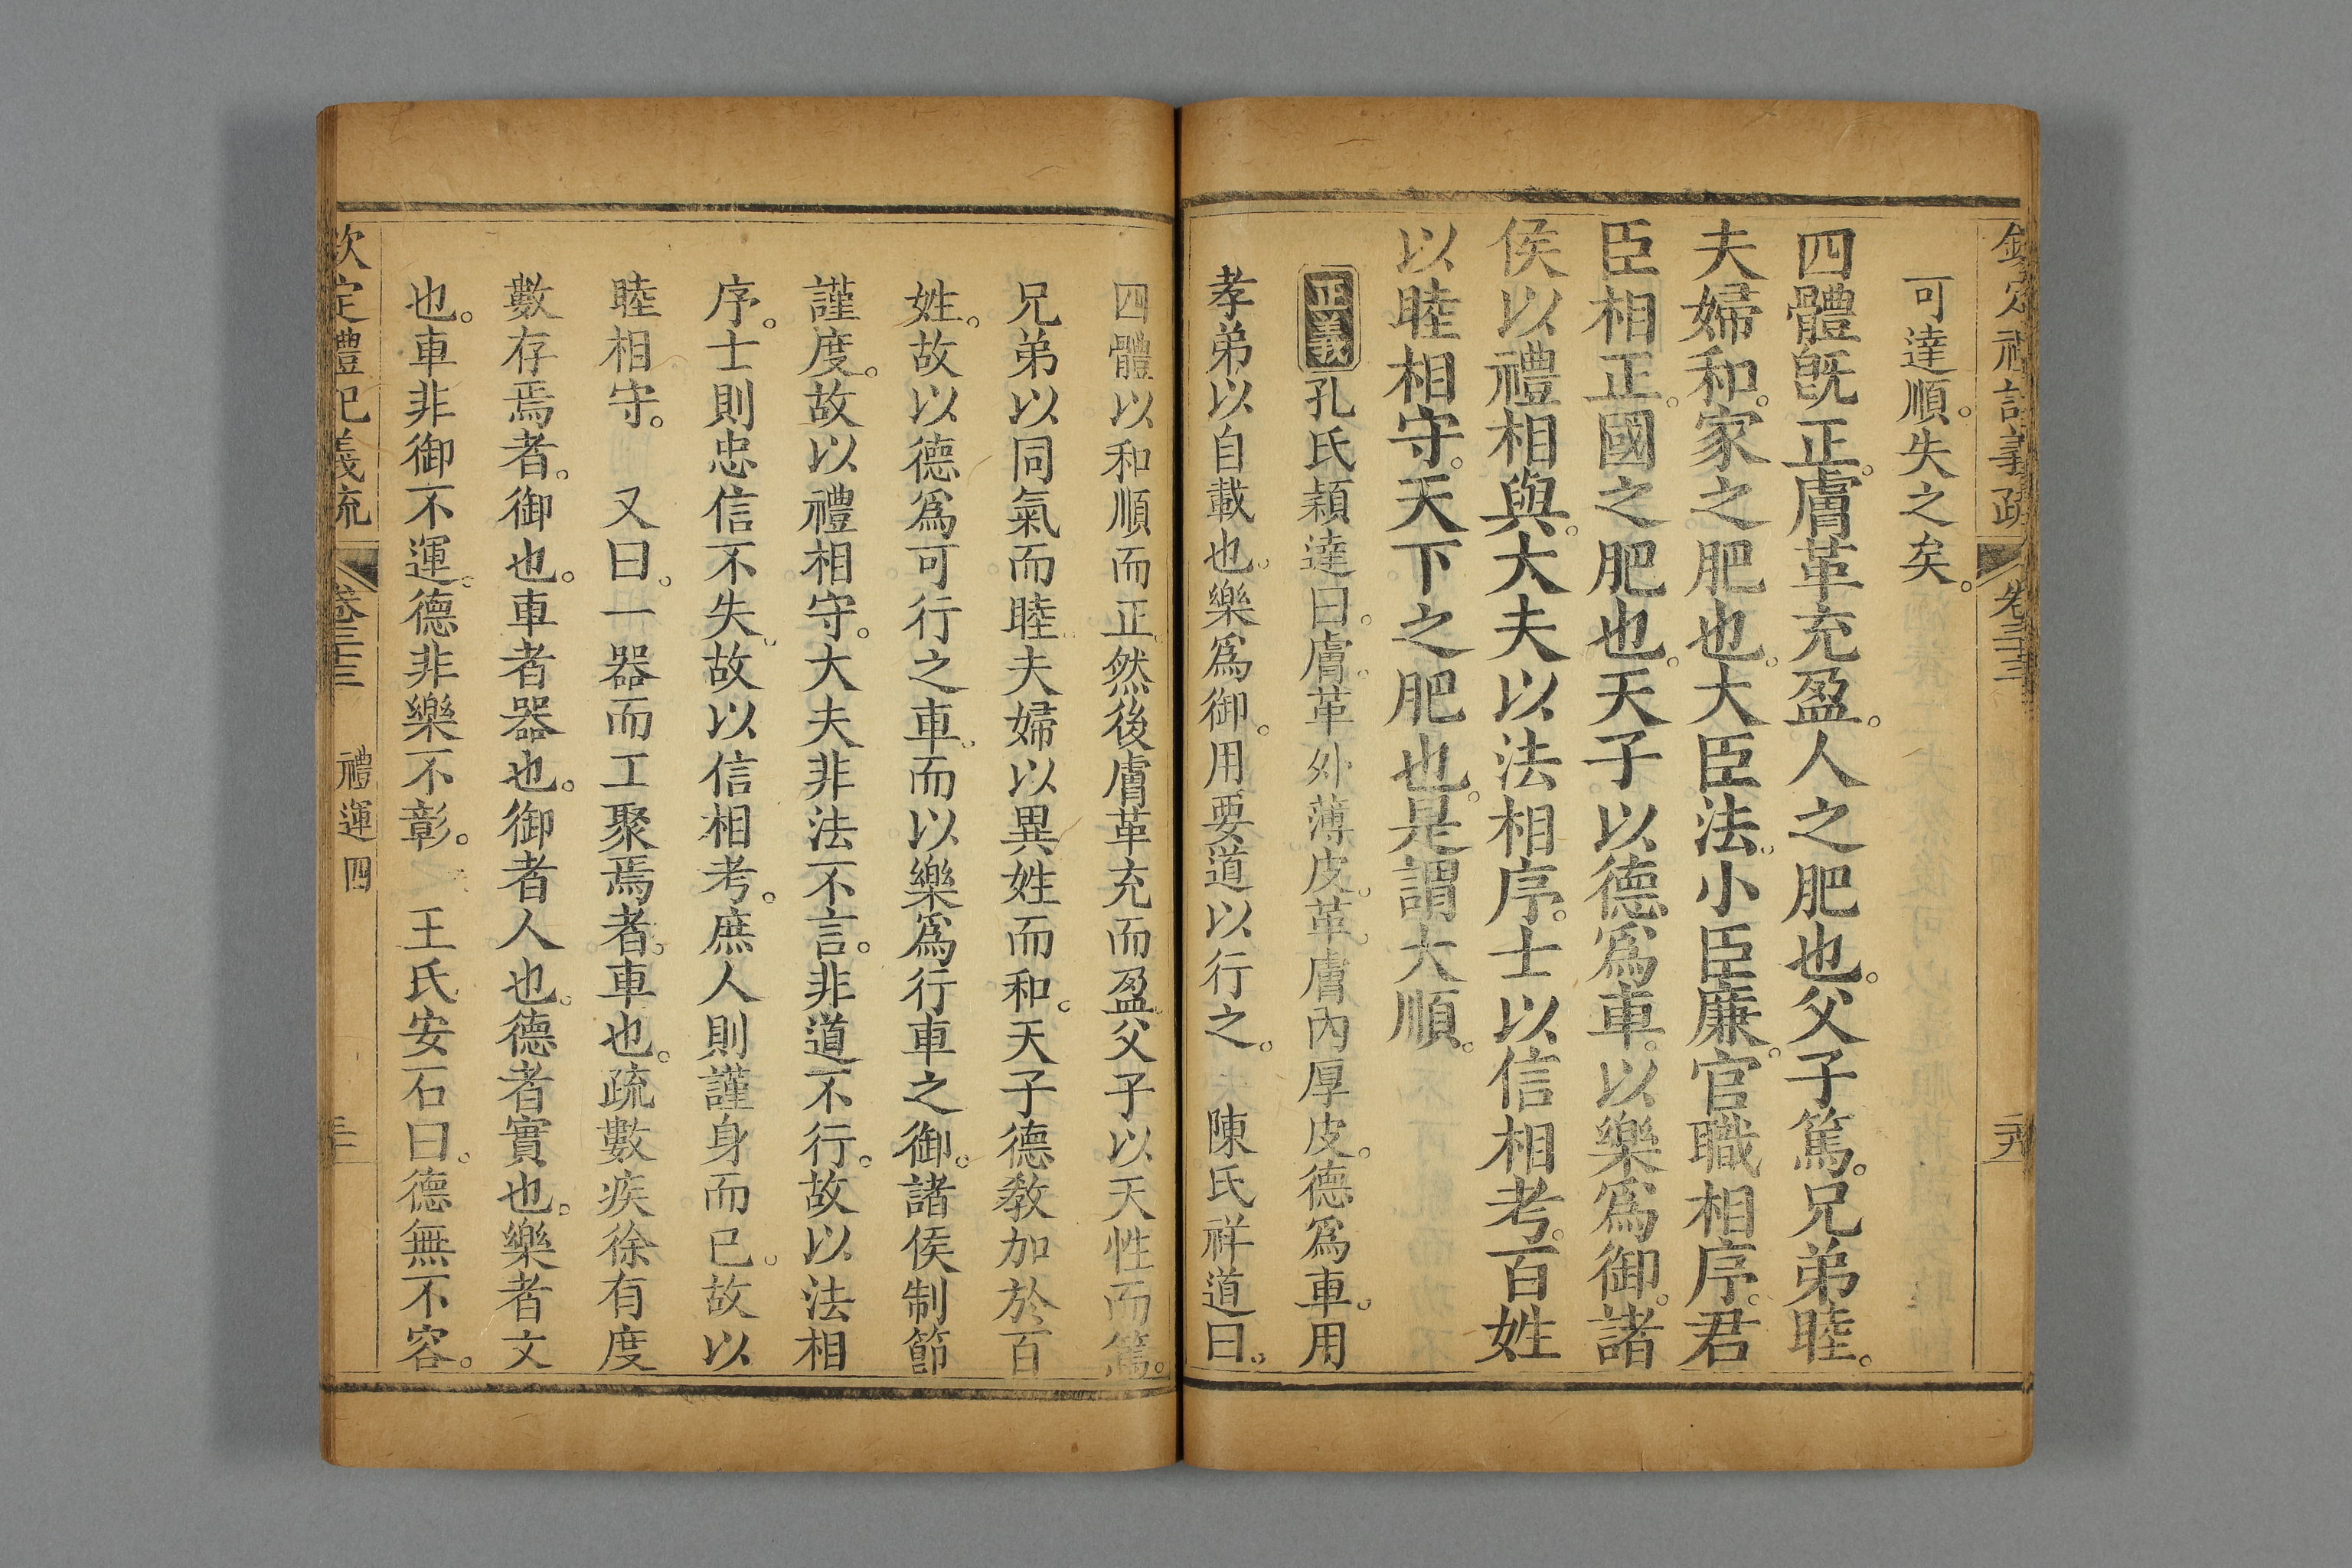 欽定禮記義疏 卷三十三
可達順。失之矣。
四體旣正。膚革充盈。人之肥也。父子篤。兄弟睦。
夫婦和。家之肥也。大臣法。小臣廉。官職相序。君
臣相正。國之肥也。天子以德爲車。以樂爲御。諸
侯以禮相與。大夫以法相序。士以信相考。百姓
以睦相守。天下之肥也。是謂大順。
正義孔氏穎達曰。膚。革外薄皮。革。膚內厚皮。德爲車。用
孝弟以自載也。樂爲御。用要道以行之。 陳氏祥道曰。
四體以和順而正。然後膚革充而盈。父子以天性而篤。
兄弟以同氣而睦。夫婦以異姓而和。天子德敎加於百
姓。故以德爲可行之車。而以樂爲行車之御。諸侯制節
謹度。故以禮相守。大夫非法不言。非道不行。故以法相
序。士則忠信不失。故以信相考。庶人則謹身而已。故以
睦相守。 又曰。一器而工聚焉者。車也。疏數疾徐有度
數存焉者。御也。車者器也。御者人也。德者實也。樂者文
也。車非御不運。德非樂不彰。 王氏安石曰。德無不容。
欽定禮記義疏 卷三十三 禮運四